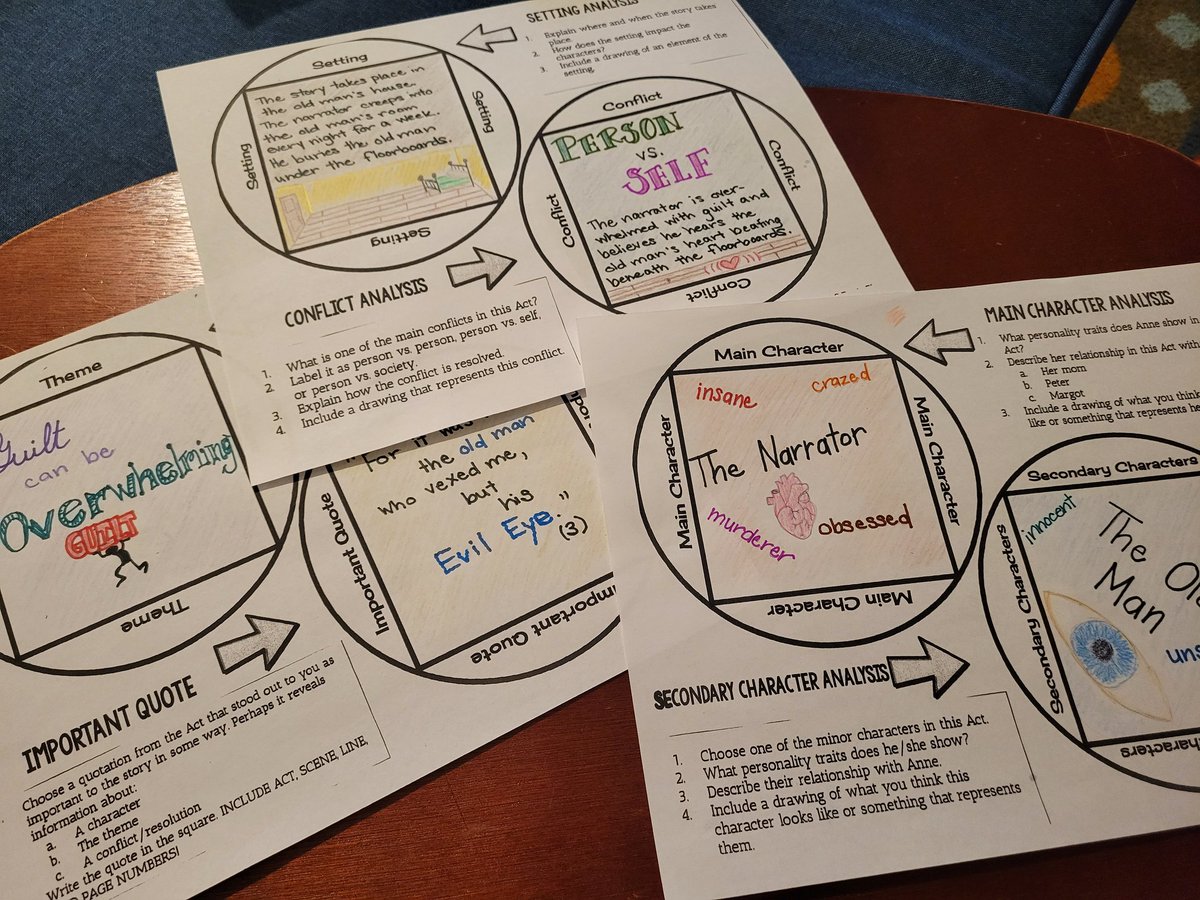 SETTING ANALYSIS
1. Explain where and when the story takes
place
2. How does the setting impact the
characters?
3. Include a drawing of an element of the
setting.
Setting
Setting
Setting
Setting
The story takes place in
the old man's house.
The narrator creeps into
the old man's room
every night for a week.
He buries the old man
under the floorboards.
Conflict
Conflict
Conflict
Conflict
PERSON
vs.
SELF
The narrator is over-
whelmed with guilt and
believes he hears the
old man's heart beating
beneath the floorboards.
CONFLICT ANALYSIS
1. What is one of the main conflicts in this Act?
2. Label it as person vs. person, person vs. self,
or person vs. society.
3. Explain how the conflict is resolved.
4. Include a drawing that represents this conflict.
Theme
Theme
Guilt
can be
Overwhelming
GUILT
Important Quote
Important Quote
Important Quote
"For it was
the old man
who vexed me,
but
his
Evil Eye."
(3)
IMPORTANT QUOTE
Choose a quotation from the Act that stood out to you as
important to the story in some way. Perhaps it reveals
information about:
a. A character
b. The theme
c. A conflict/resolution
Write the quote in the square. INCLUDE ACT, SCENE, LINE,
PAGE NUMBERS!
MAIN CHARACTER ANALYSIS
1. What personality traits does Anne show in
Act?
2. Describe her relationship in this Act with
a. Her mom
b. Peter
c. Margot
3. Include a drawing of what you think
like or something that represents
Main Character
Main Character
Main Character
Main Character
insane
crazed
The Narrator
murderer
obsessed
Secondary Characters
Secondary Characters
Characters
innocent
The
Man
SECONDARY CHARACTER ANALYSIS
1. Choose one of the minor characters in this Act.
2. What personality traits does he/she show?
3. Describe their relationship with Anne.
4. Include a drawing of what you think this
character looks like or something that represents
them.